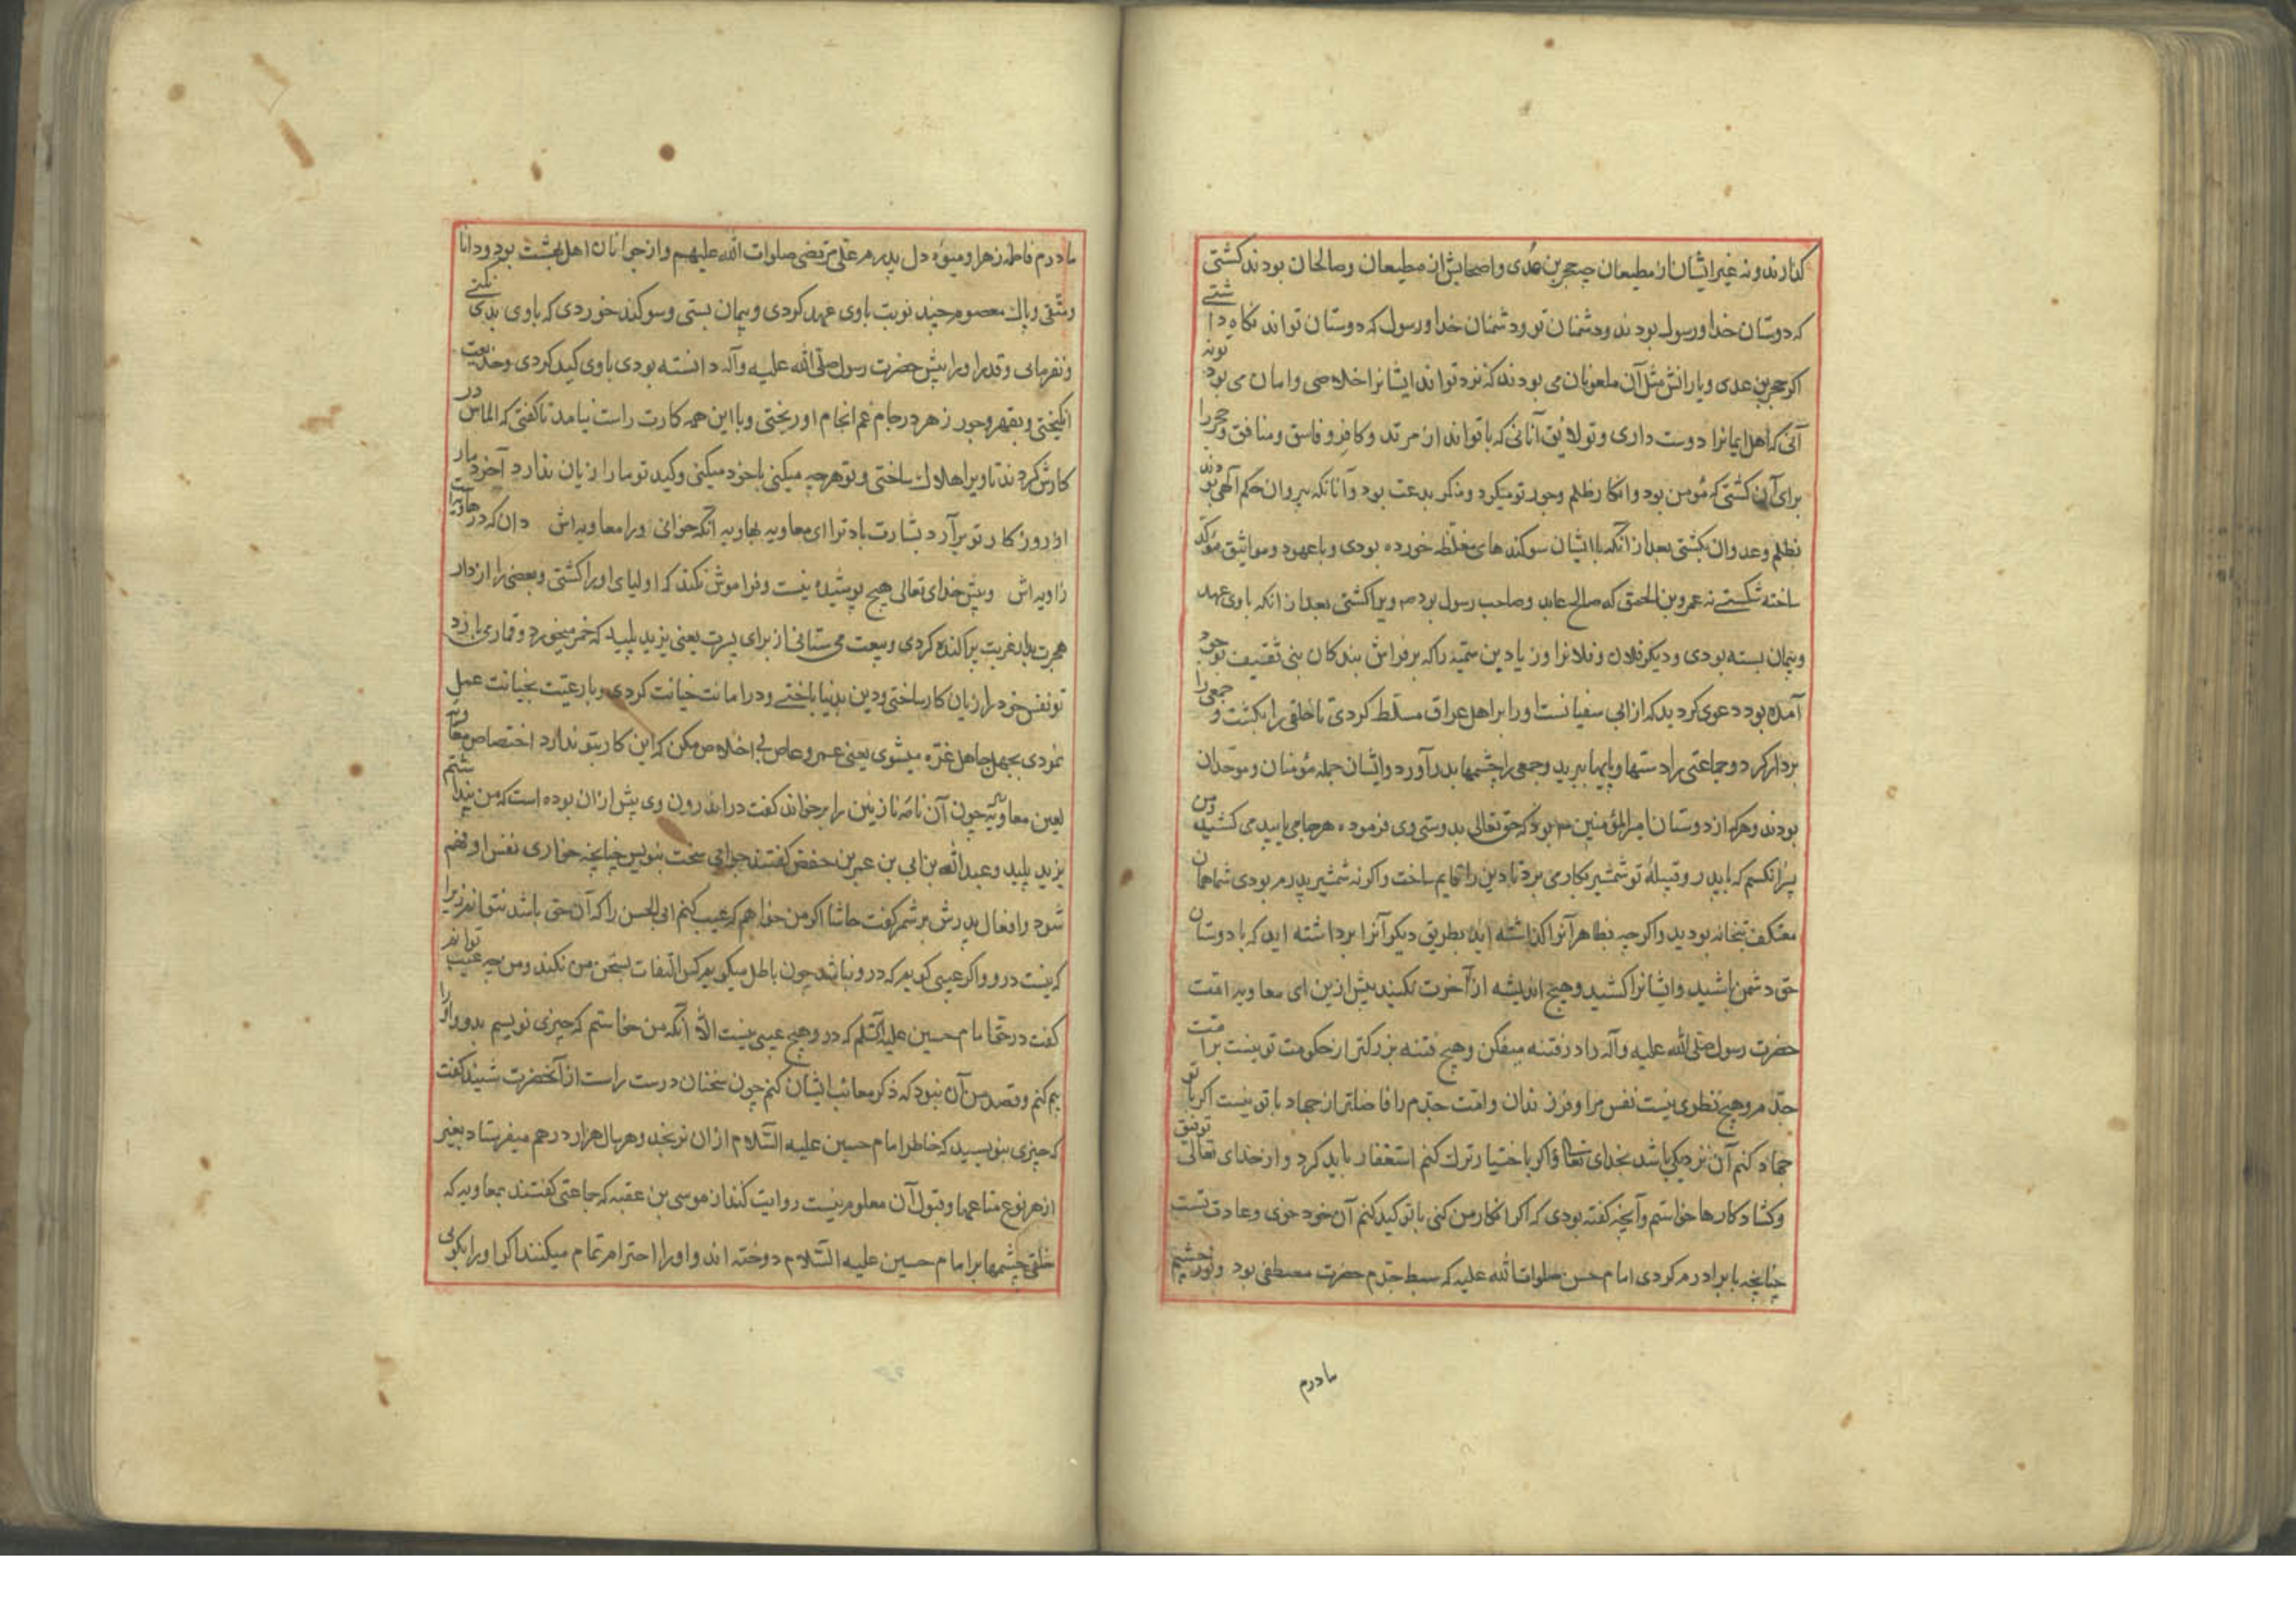 کذارند و نه غیر ایشان از مطیعان چه حجر بن عدی و اصحابش از مطیعان و صالحان بودند کشتی
که دوستان خدا و رسول بودند و دشمنان تو و دشمنان خدا و رسول که دوستان تواند نکاه داشتی
اکر حجر بن عدی و یارانش مثل آن ملعونان می بودند که نزد تواند ایشانرا خلاصی و امان می بود تو نه
آنی که اهل ایمانرا دوست داری و تو لایق آنانی که با تواند از مرتد و کافر و فاسق و منافق و حجر را
برای آن کشتی که مؤمن بود و انکار ظلم و جور تو میکرد و منکر بدعت بود و آنانکه پیروان حکم آلهی بودند
بظلم و عدوان بکشتی بعد از آنکه با ایشان سوکندهای مغلظه خورده بودی و با عهود و مواثیق مؤکد
ساخته شکستی نه عمرو بن الحمق که صالح عابد و صاحب رسول بود ص ویرا کشتی بعد از انکه با وی عهد
و پیمان بسته بودی و دیکر فلان و فلانرا و زیاد بن سمیه را که بر فراش بندکان بنی ثقیف بوجود
آمده بود دعوی کردید که از ابی سفیانست او را بر اهل عراق مسلط کردی تا خلقی را بکشت و جمعی را
بردار کرد و جماعتی را دستها و پایها ببرید و جمعی را چشمها بدر آورد و ایشان جمله مؤمنان و موحدان
بودند و هرکه از دوستان امیر المؤمنین ع بود که حق تعالی بدوستی وی فرموده هر جا می یابید می کشید و من
پسر آنکسم که با پدر و قبیلهٔ تو شمشیر بکار می برد تا دین را قایم ساخت و اکر نه شمشیر پدرم بودی شما همان
معتکف بتخانه بودید و اکر چه بظاهر آنرا کذاشته اید بطریق دیکر آنرا برداشته اید که با دوستان
حق دشمن باشید و ایشانرا کشید و هیچ اندیشه از آخرت نکنید بیش ازین ای معاویه امت
حضرت رسول صلی الله علیه و آله را در فتنه میفکن و هیچ فتنه بزرکتر از حکومت تو نیست بر امت
جدم و هیچ نظری نیست نفس مرا و فرزندان و امت جدم را فاضلتر از جهاد با تو نیست اکر با تو
جهاد کنم آن نزدیکی باشد بخدای تعالی و اکر باختیار ترک کنم استغفار باید کرد و از خدای تعالی توفیق
و کشاد کارها خواستم و آنچه کفته بودی که اکر انکار من کنی با تو کید کنم آن خود خوی و عادت تست
چنانچه با برادرم کردی امام حسن صلوات الله علیه که سبط جدم حضرت مصطفی بود و نور چشم
مادرم
مادرم فاطمه زهرا و میوه دل پدرم علی مرتضی صلوات الله علیهم و از جوانان اهل بهشت بود و دانا
و متقی و پاک معصوم چند نوبت با وی عهد کردی و پیمان بستی و سوکند خوردی که با وی بدی نکنی
و نفرمایی و قدر او را پیش حضرت رسول صلی الله علیه و آله دانسته بودی با وی کید کردی و خدیعت
انکیختی و بقهر و جور زهر در جام غم انجام او ریختی و با این همه کارت راست نیامد تا کفتی که الماس در
کارش کردند تا ویرا هلاک ساختی و تو هر چه میکنی با خود میکنی و کید تو ما را زیان ندارد آخر دمار
از روزکار تو برآرد بشارت باد ترا ای معاویه بهاویه آنکه خوانی ورا معاویه اش دان که در هاویه است
زاویه اش و پیش خدای تعالی هیچ پوشیده نیست و فراموش نکند که اولیای او را کشتی و بعضی را از دار
هجرت بدار غربت پراکنده کردی و بیعت می ستانی از برای پسرت یعنی یزید پلید که خمر میخورد و قمار می بازد
تو نفس خود را زیان کار ساختی و دین بدنیا باختی و در امانت خیانت کردی و با رعیت بخیانت عمل
نمودی بجهل جاهل غره میشوی یعنی عمرو عاص بی اخلاص مکن که این کار بتو ندارد اختصاص معاویه
لعین معاویه چون آن نامهٔ نازنین را بر خواند کفت در اندرون وی بیش از ان بوده است که من پنداشتم
یزید پلید و عبدالله بن ابی بن عمر بن حفض کفتند جوابی سخت بنویس چنانچه خواری نفس او فهم
شود و افعال پدرش بر شمر کفت حاشا اکر من خواهم که عیب کنم ابی الحسن را که آن حق باشد نتوانم زیرا
که نیست در و و اکر عیبی کویم که در و نباشد چون باطل میکویم کس التفات بسخن من نکند و من چه عیب توانم
کفت در حق امام حسین علیه السلم که در و هیچ عیبی نیست الا آنکه من خواستم که چیزی نویسم بدو و او را
بیم کنم و قصد من آن نبود که ذکر معائب ایشان کنم چون سخنان درست راست از آنحضرت شنید کفت
که چیزی بنویسید که خاطر امام حسین علیه السلام از ان نرنجد و هر سال هزار درهم میفرستاد بغیر
از هر نوع متاعها و قبول آن معلوم نیست روایت کند از موسی بن عقبه که جماعتی کفتند بمعاویه که
خلقی چشمها بر امام حسین علیه السلام دوخته اند و او را احترام تمام میکنند اکر او را بکویی